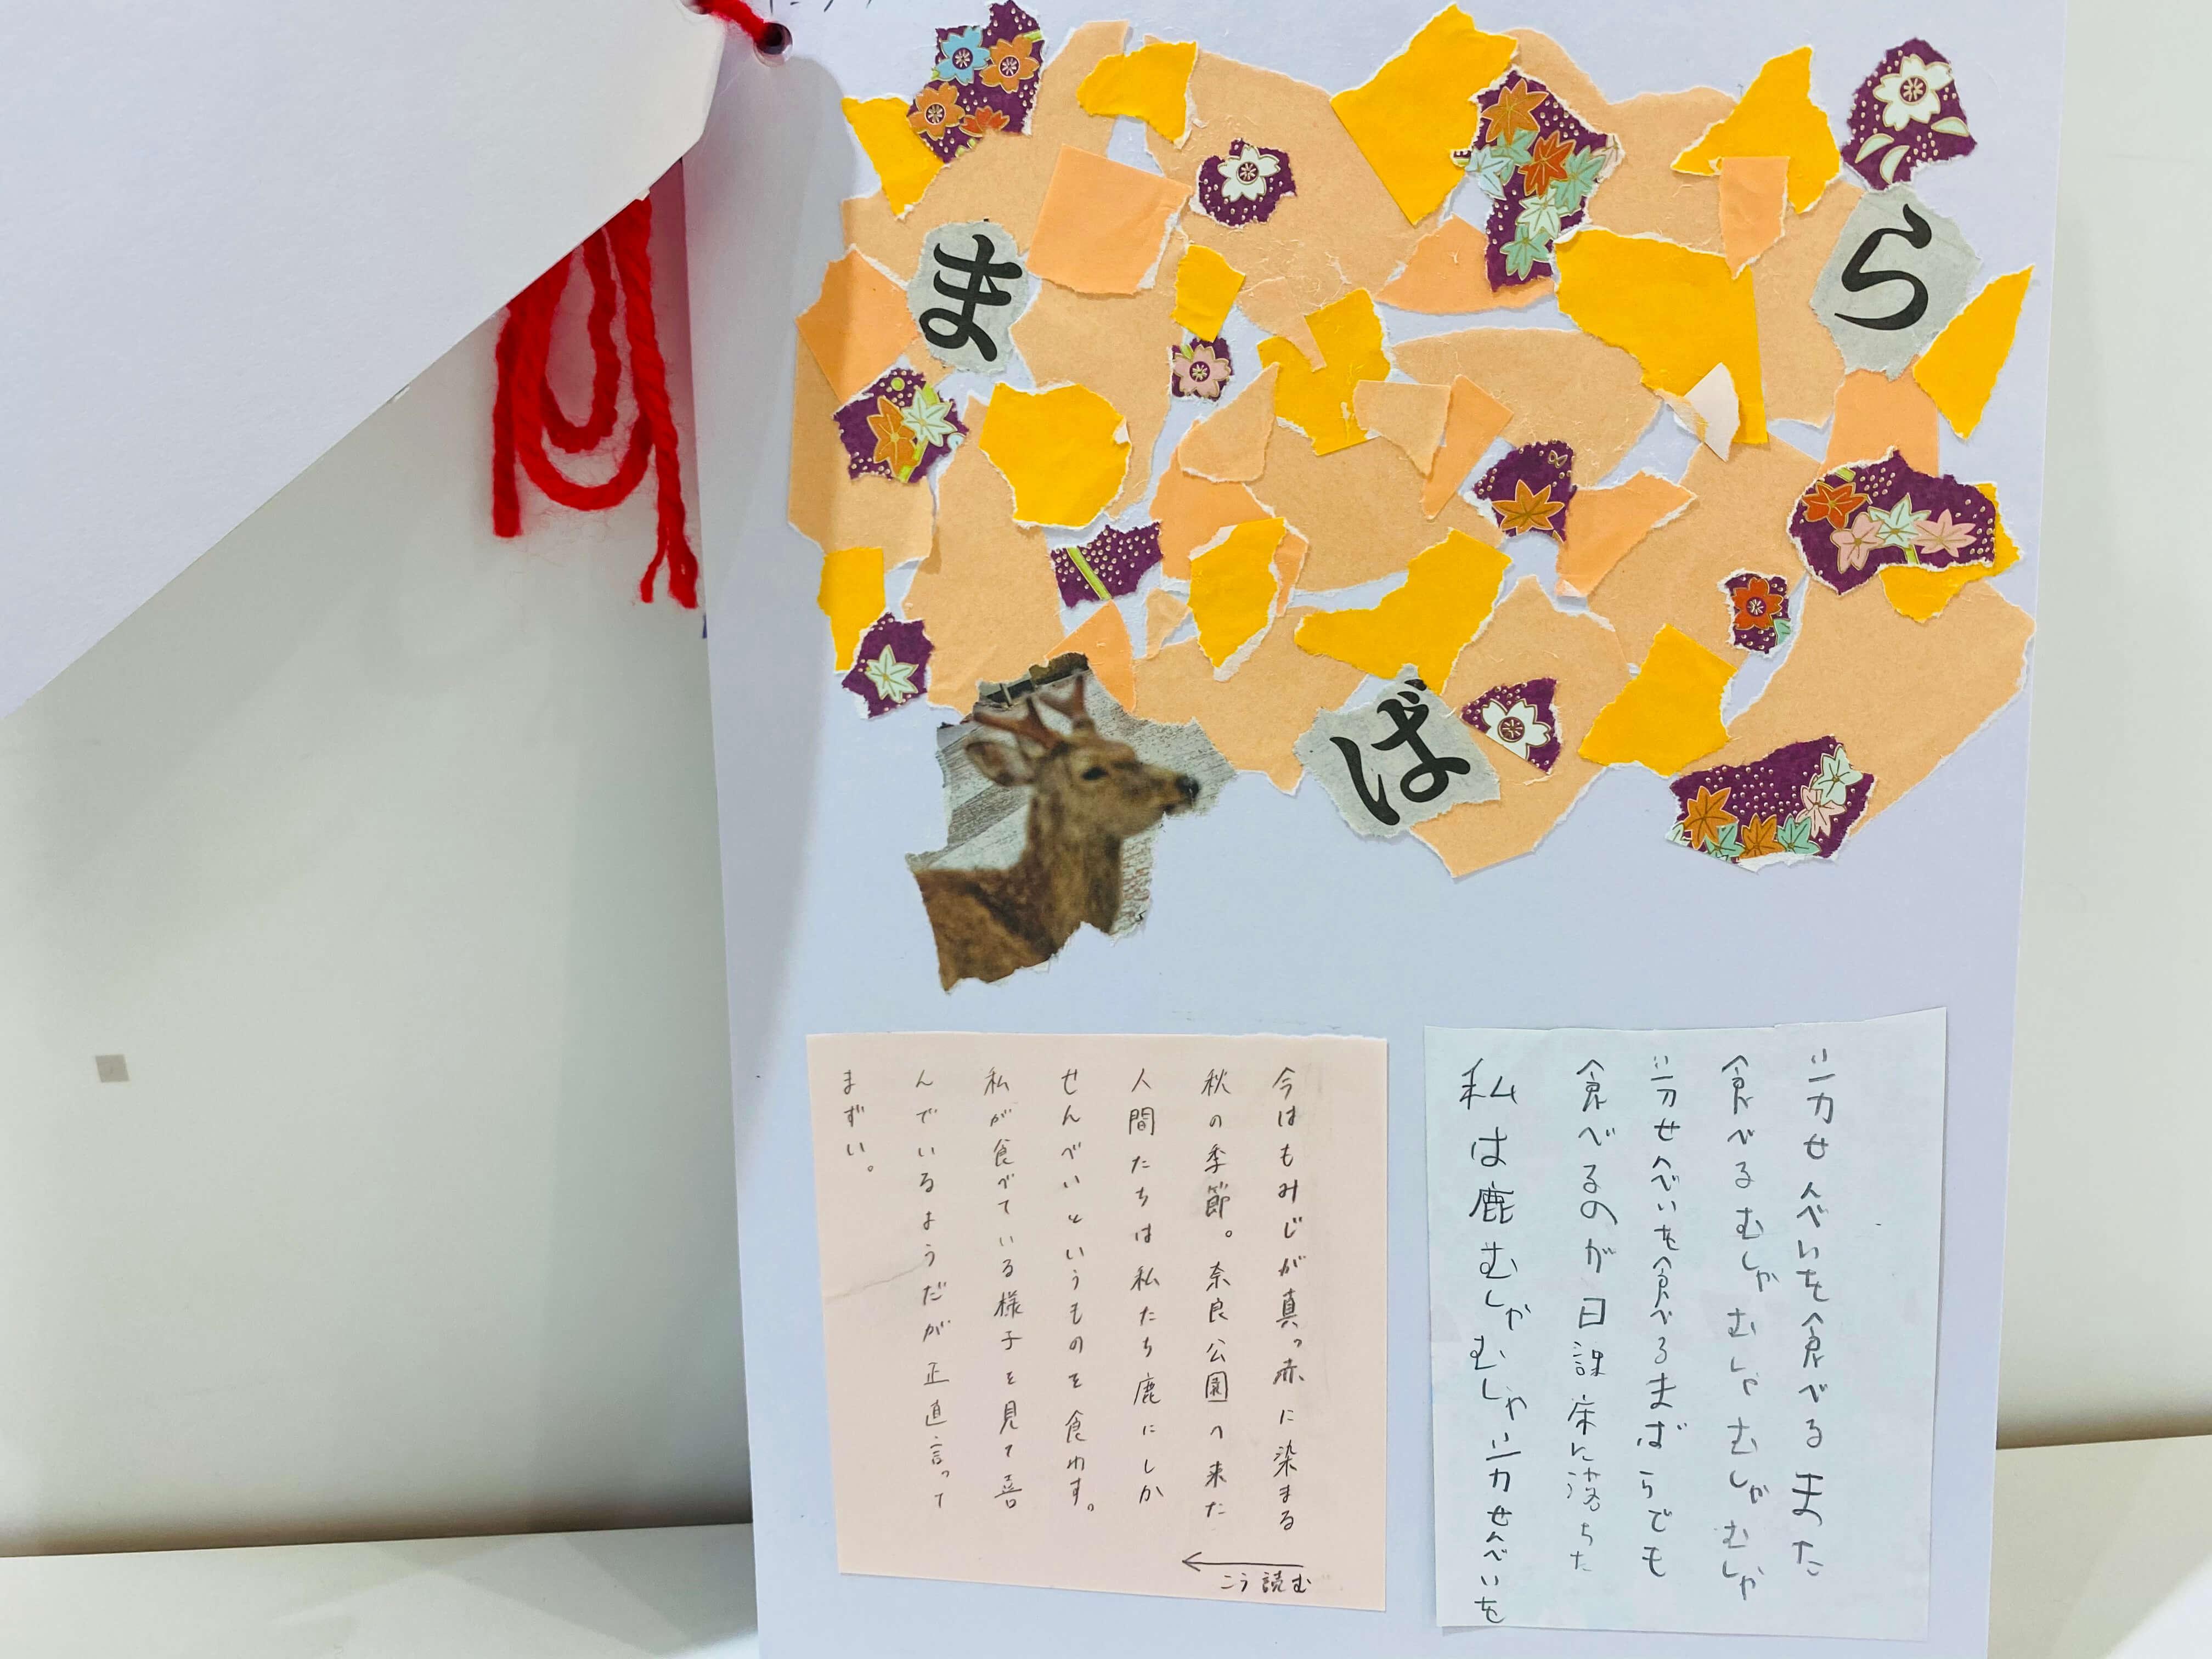 ま
ば
ら
今はもみじが真っ赤に染まる
秋の季節。奈良公園へ来た
人間たちは私たち鹿にしか
せんべいというものを食わす。
私が食べている様子を見て喜
んでいるようだが正直言って
まずい。
こう読む
私は鹿むしゃむしゃシカせんべいを
食べるのが日課床に落ちた
シカせんべいを食べるまばらでも
食べるむしゃむしゃむしゃむしゃ
シカせんべいを食べるまた